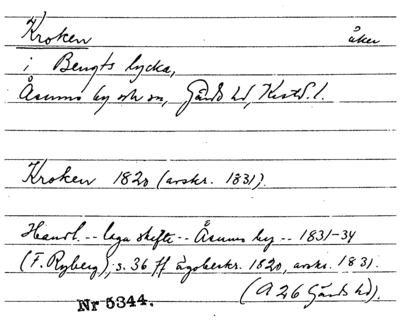 Kroken åker
i Bengts lycka,
Åsums by och sn, Gärds hd, Kristd. l.
Kroken 1820 (avskr. 1831).
Handl. -- laga skifte -- Åsums by -- 1831-34
(F. Ryberg), s. 36 ff ägobeskr. 1820, avskr. 1831.
(A 26 Gärds hd).
Nr 5344.